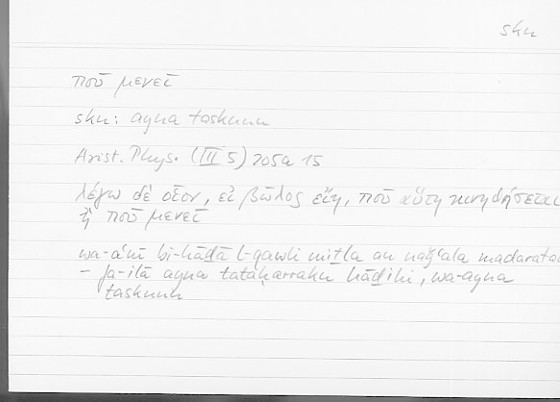 skn
ποῦ μενεῖ
skn: ayna taskunu
Arist. Phys. (III 5) 205a 15
λέγω δὲ οἷον, εἰ βῶλος εἴη, ποῦ αὕτη κινηθήσεται
ἢ ποῦ μενεῖ
wa-aʿnī bi-hāḏā l-qawli miṯla an naǧʿala madaratan
– fa-ilā ayna tataḥarraku hāḏihi, wa-ayna
taskunu